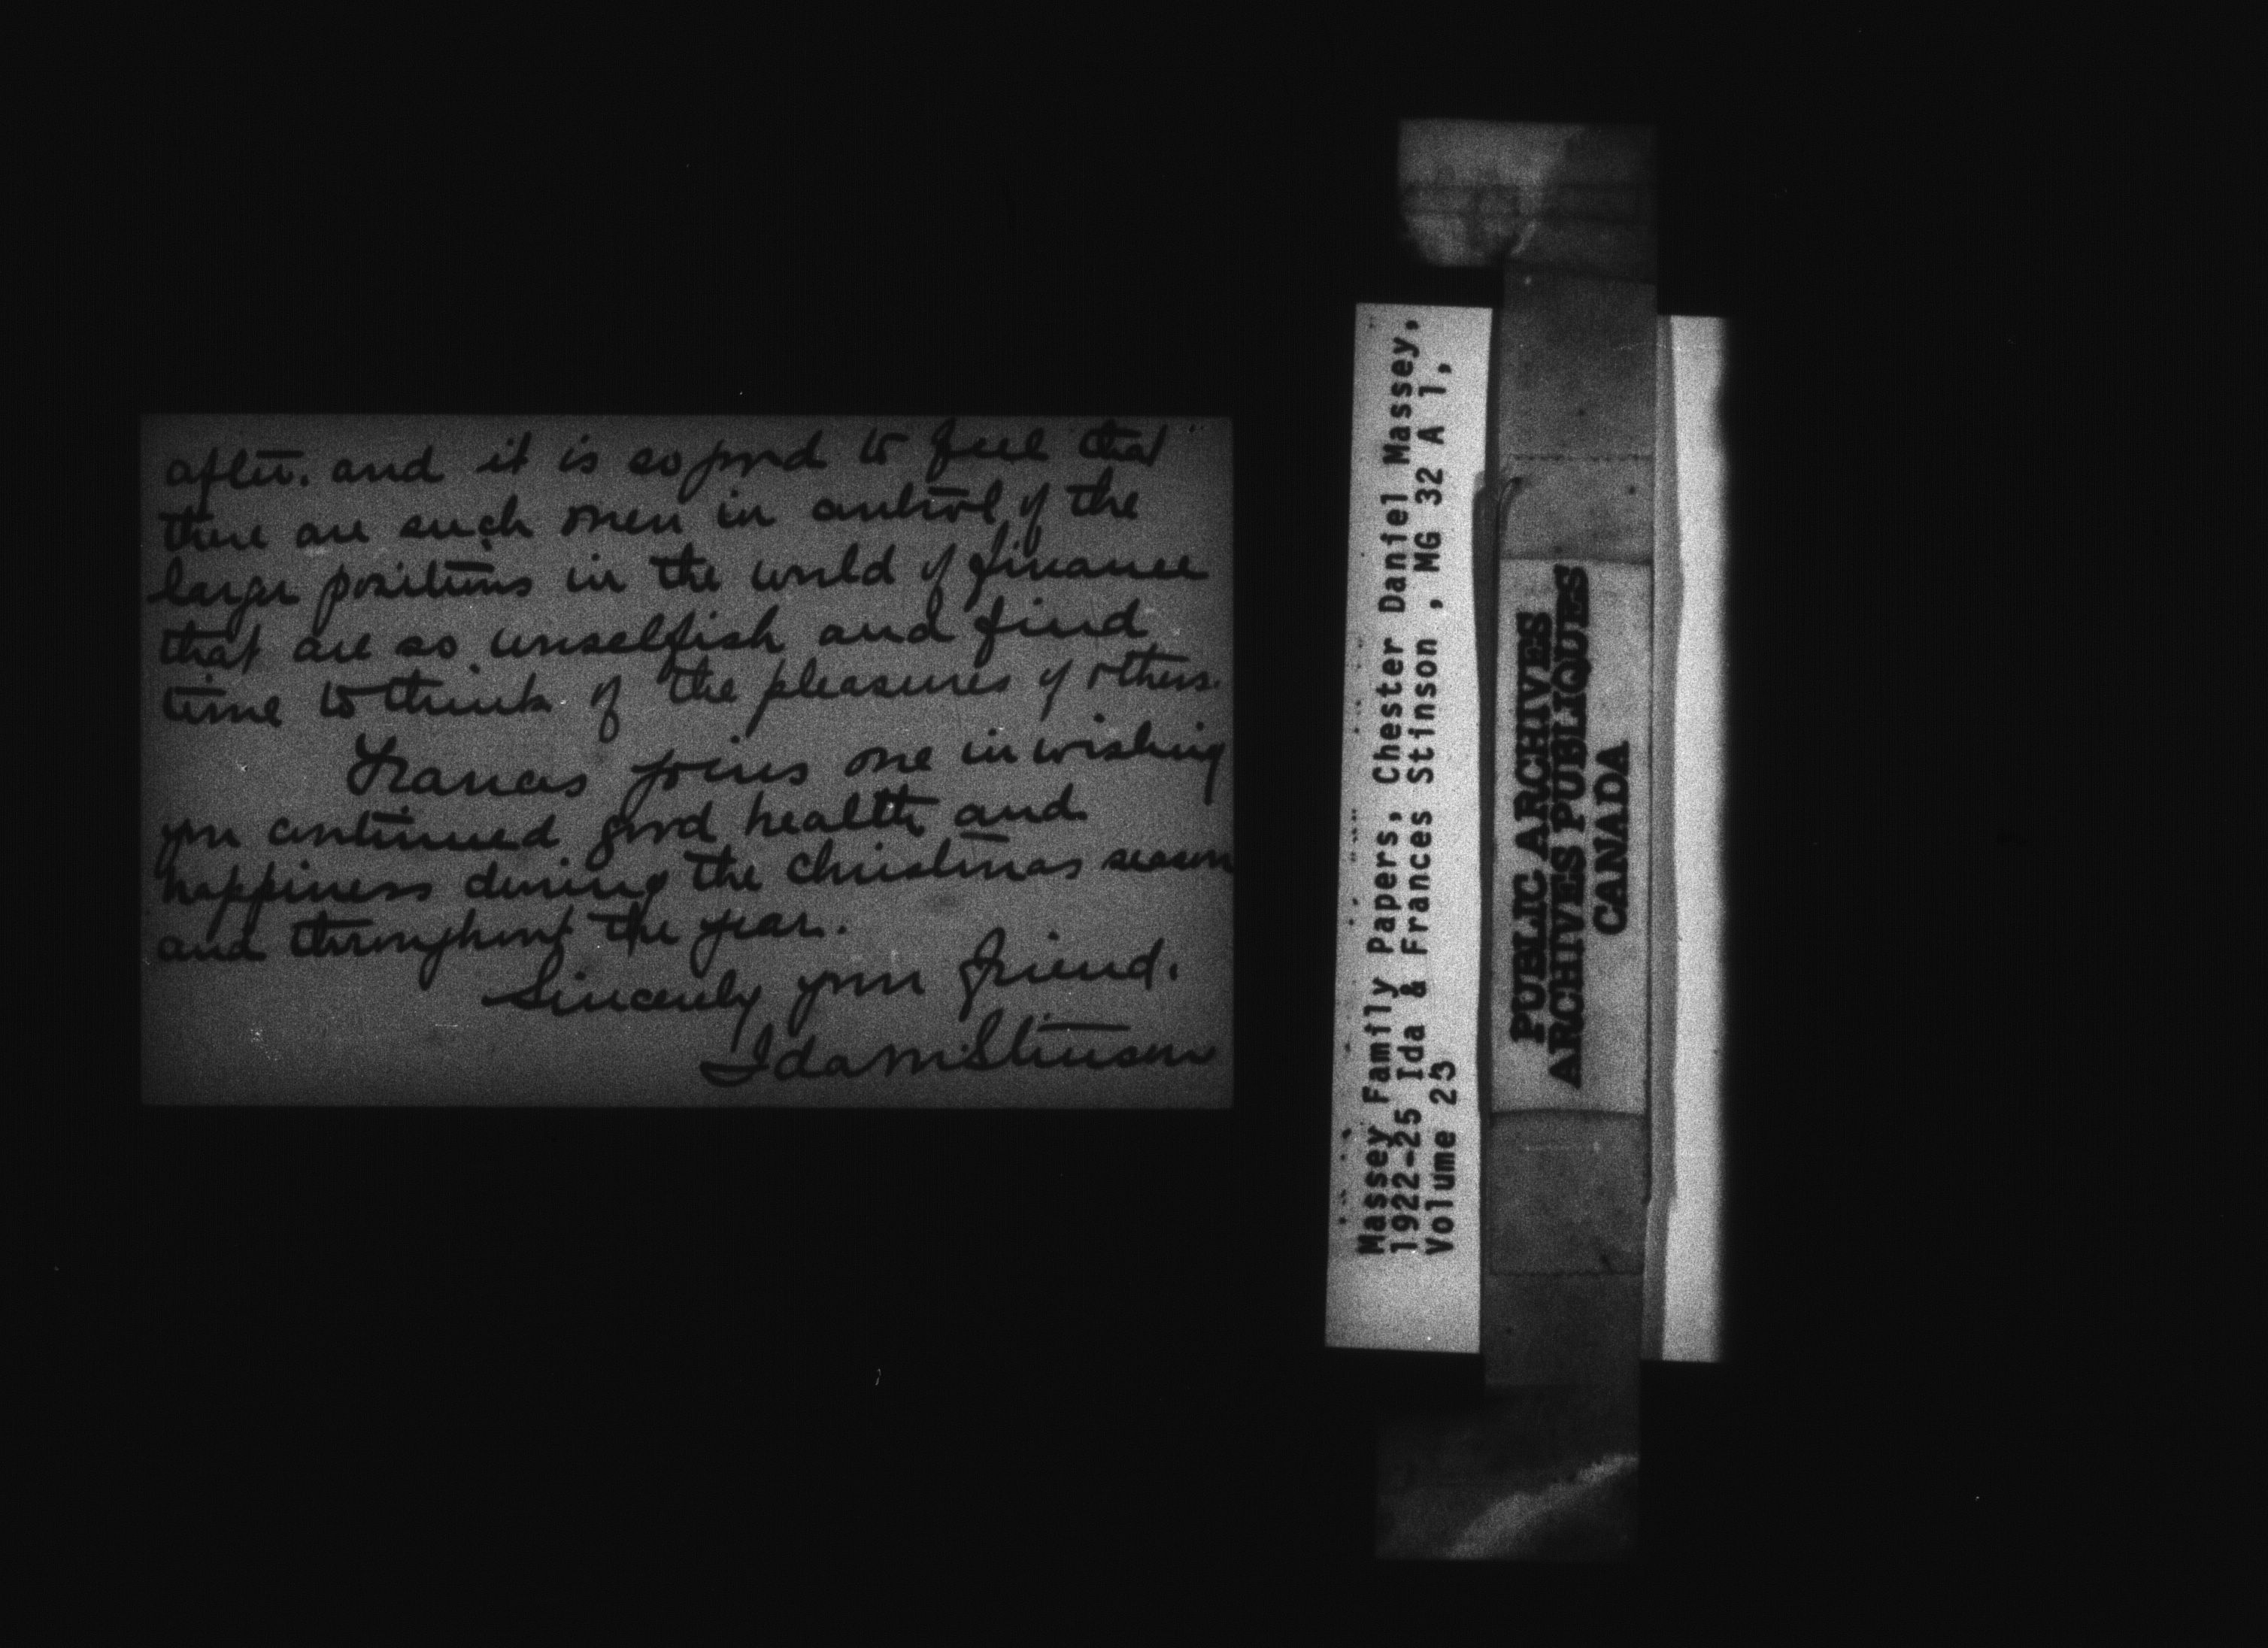 after. and it is so good to feel that
there are such men in control of the
larger positions in the world of finance
that are so unselfish and find
time to think of the pleasures of others.
Frances joins me in wishing
you continued good health and
happiness during the Christmas season
and throughout the year.
Sincerely your friend.
Ida M. Stinson
Massey Family Papers, Chester Daniel Massey,
1922-25 Ida & Frances Stinson , MG 32 A 1,
Volume 23
PUBLIC ARCHIVES
ARCHIVES PUBLIQUES
CANADA